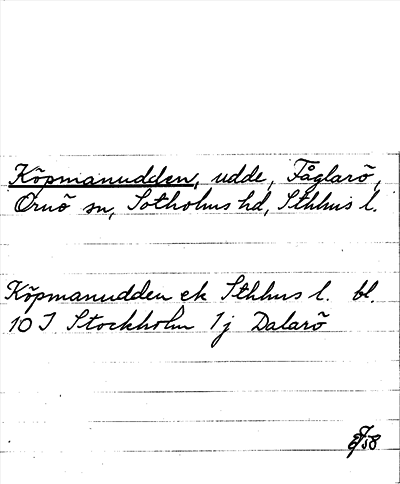 Köpmanudden, udde, Fåglarö,
Ornö sn, Sotholms hd, Sthlms l.
Köpmanudden ek Sthlms l. bl.
10 I Stockholm 1 j Dalarö
58